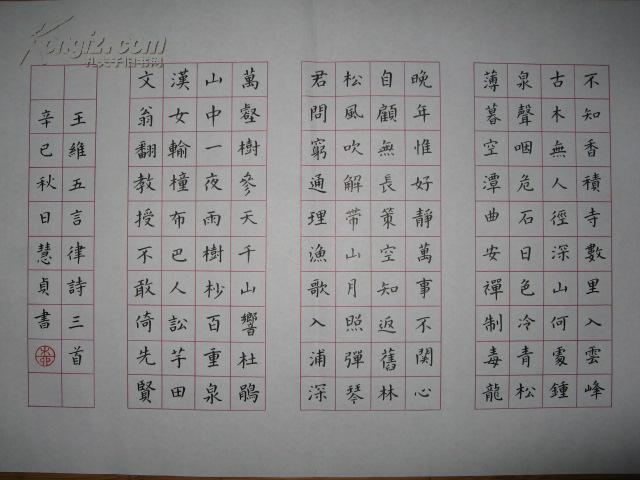 不知香積寺數里入雲峰
古木無人徑深山何處鍾
泉聲咽危石日色冷青松
薄暮空潭曲安禪制毒龍
晚年惟好靜萬事不関心
自顧無長策空知返舊林
松風吹解帶山月照彈琴
君問窮通理漁歌入浦深
萬壑樹參天千山響杜鵑
山中一夜雨樹杪百重泉
漢女輸橦布巴人訟芋田
文翁翻教授不敢倚先賢
王維五言律詩三首
辛巳秋日慧貞書
Kongfz.com
孔夫子旧书网